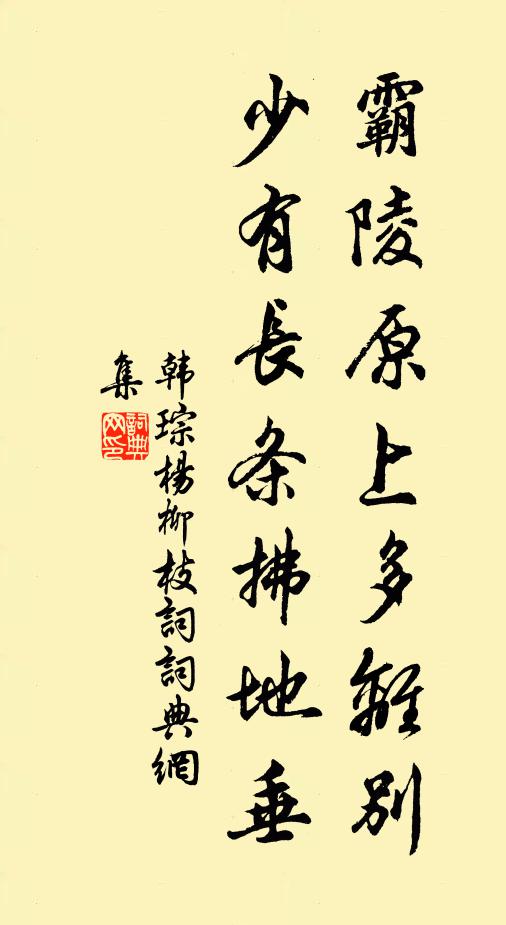 霸陵原上多離别
少有長条拂地垂
韩琮楊柳枝詞詞典網
集
詞典
网印